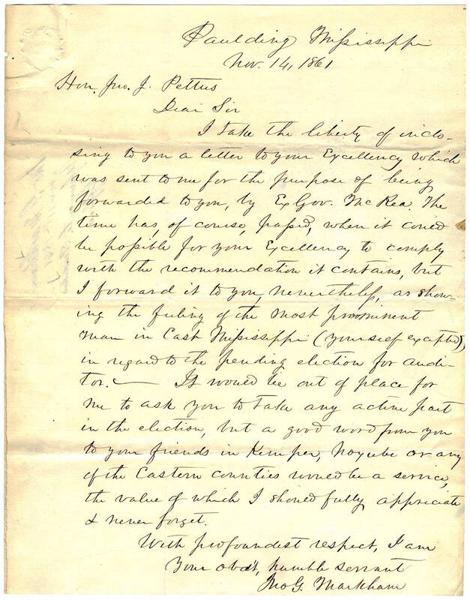 Paulding Mississippi
Nov. 14, 1861
Hon. Jno. J. Pettus
Dear Sir
I take the liberty of inclo-
sing to you a letter to your Excellency which
was sent to me for the purpose of being
forwarded to you, by Ex Gov. McRea. The
time has, of course, passed, when it could
be possible for your Excellency to comply
with the recommendation it contains, but
I forward it to you, nevertheless, as show-
ing the feeling of the most prominent
man in East Mississippi (yourself excepted)
in regard to the pending election for audi-
tor. — It would be out of place for
me to ask you to take any active part
in the election, but a good word from you
to your friends in Kemper, Noxube or any
of the Eastern counties would be a service,
the value of which I should fully appreciate
& never forget.
With profoundest respect, I am
Your obdt, humble servant
Jno G. Markham